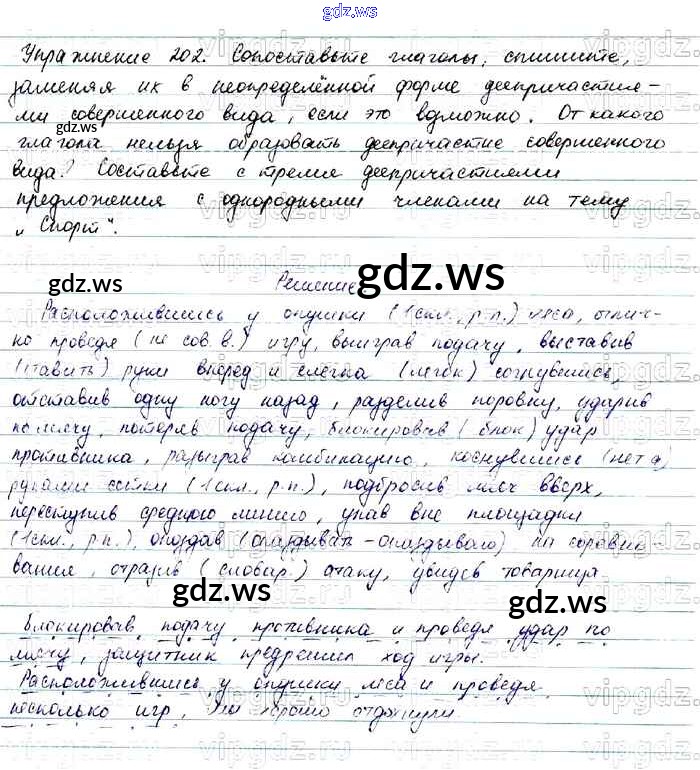 gdz.ws
Упражнение 202. Сопоставьте глаголы, спишите,
заменяя их в неопределённой форме деепричастия-
ми совершенного вида, если это возможно. От какого
глагола нельзя образовать деепричастие совершенного
вида? Составьте с тремя деепричастиями
предложения с однородными членами на тему
„Спорт".
Решение
Расположившись у опушки (1скл., р.п.) леса, отлич-
но проведя (не сов. в.) игру, выиграв подачу, выставив
(ставить) руки вперед и слегка (легок) согнувшись,
отставив одну ногу назад, разделив поровну, ударив
по мячу, потеряв подачу, блокировав (блок) удар
противника, разыграв комбинацию, коснувшись (нет а)
руками сетки (1скл., р.п.), подбросив мяч вверх,
переступив среднюю линию, упав вне площадки
(1скл., р.п.), опоздав (опаздывать - опаздываю) на соревно
вания, отразив (словар.) атаку, увидев товарища.
Блокировав подачу противника и проведя удар по
мячу, защитник предрешил ход игры.
Расположившись у опушки леса и проведя
несколько игр, мы хорошо отдохнули
gdz.ws
gdz.ws
gdz.ws
gdz.ws
gdz.ws
gdz.ws
gdz.ws
vipgdz.ru